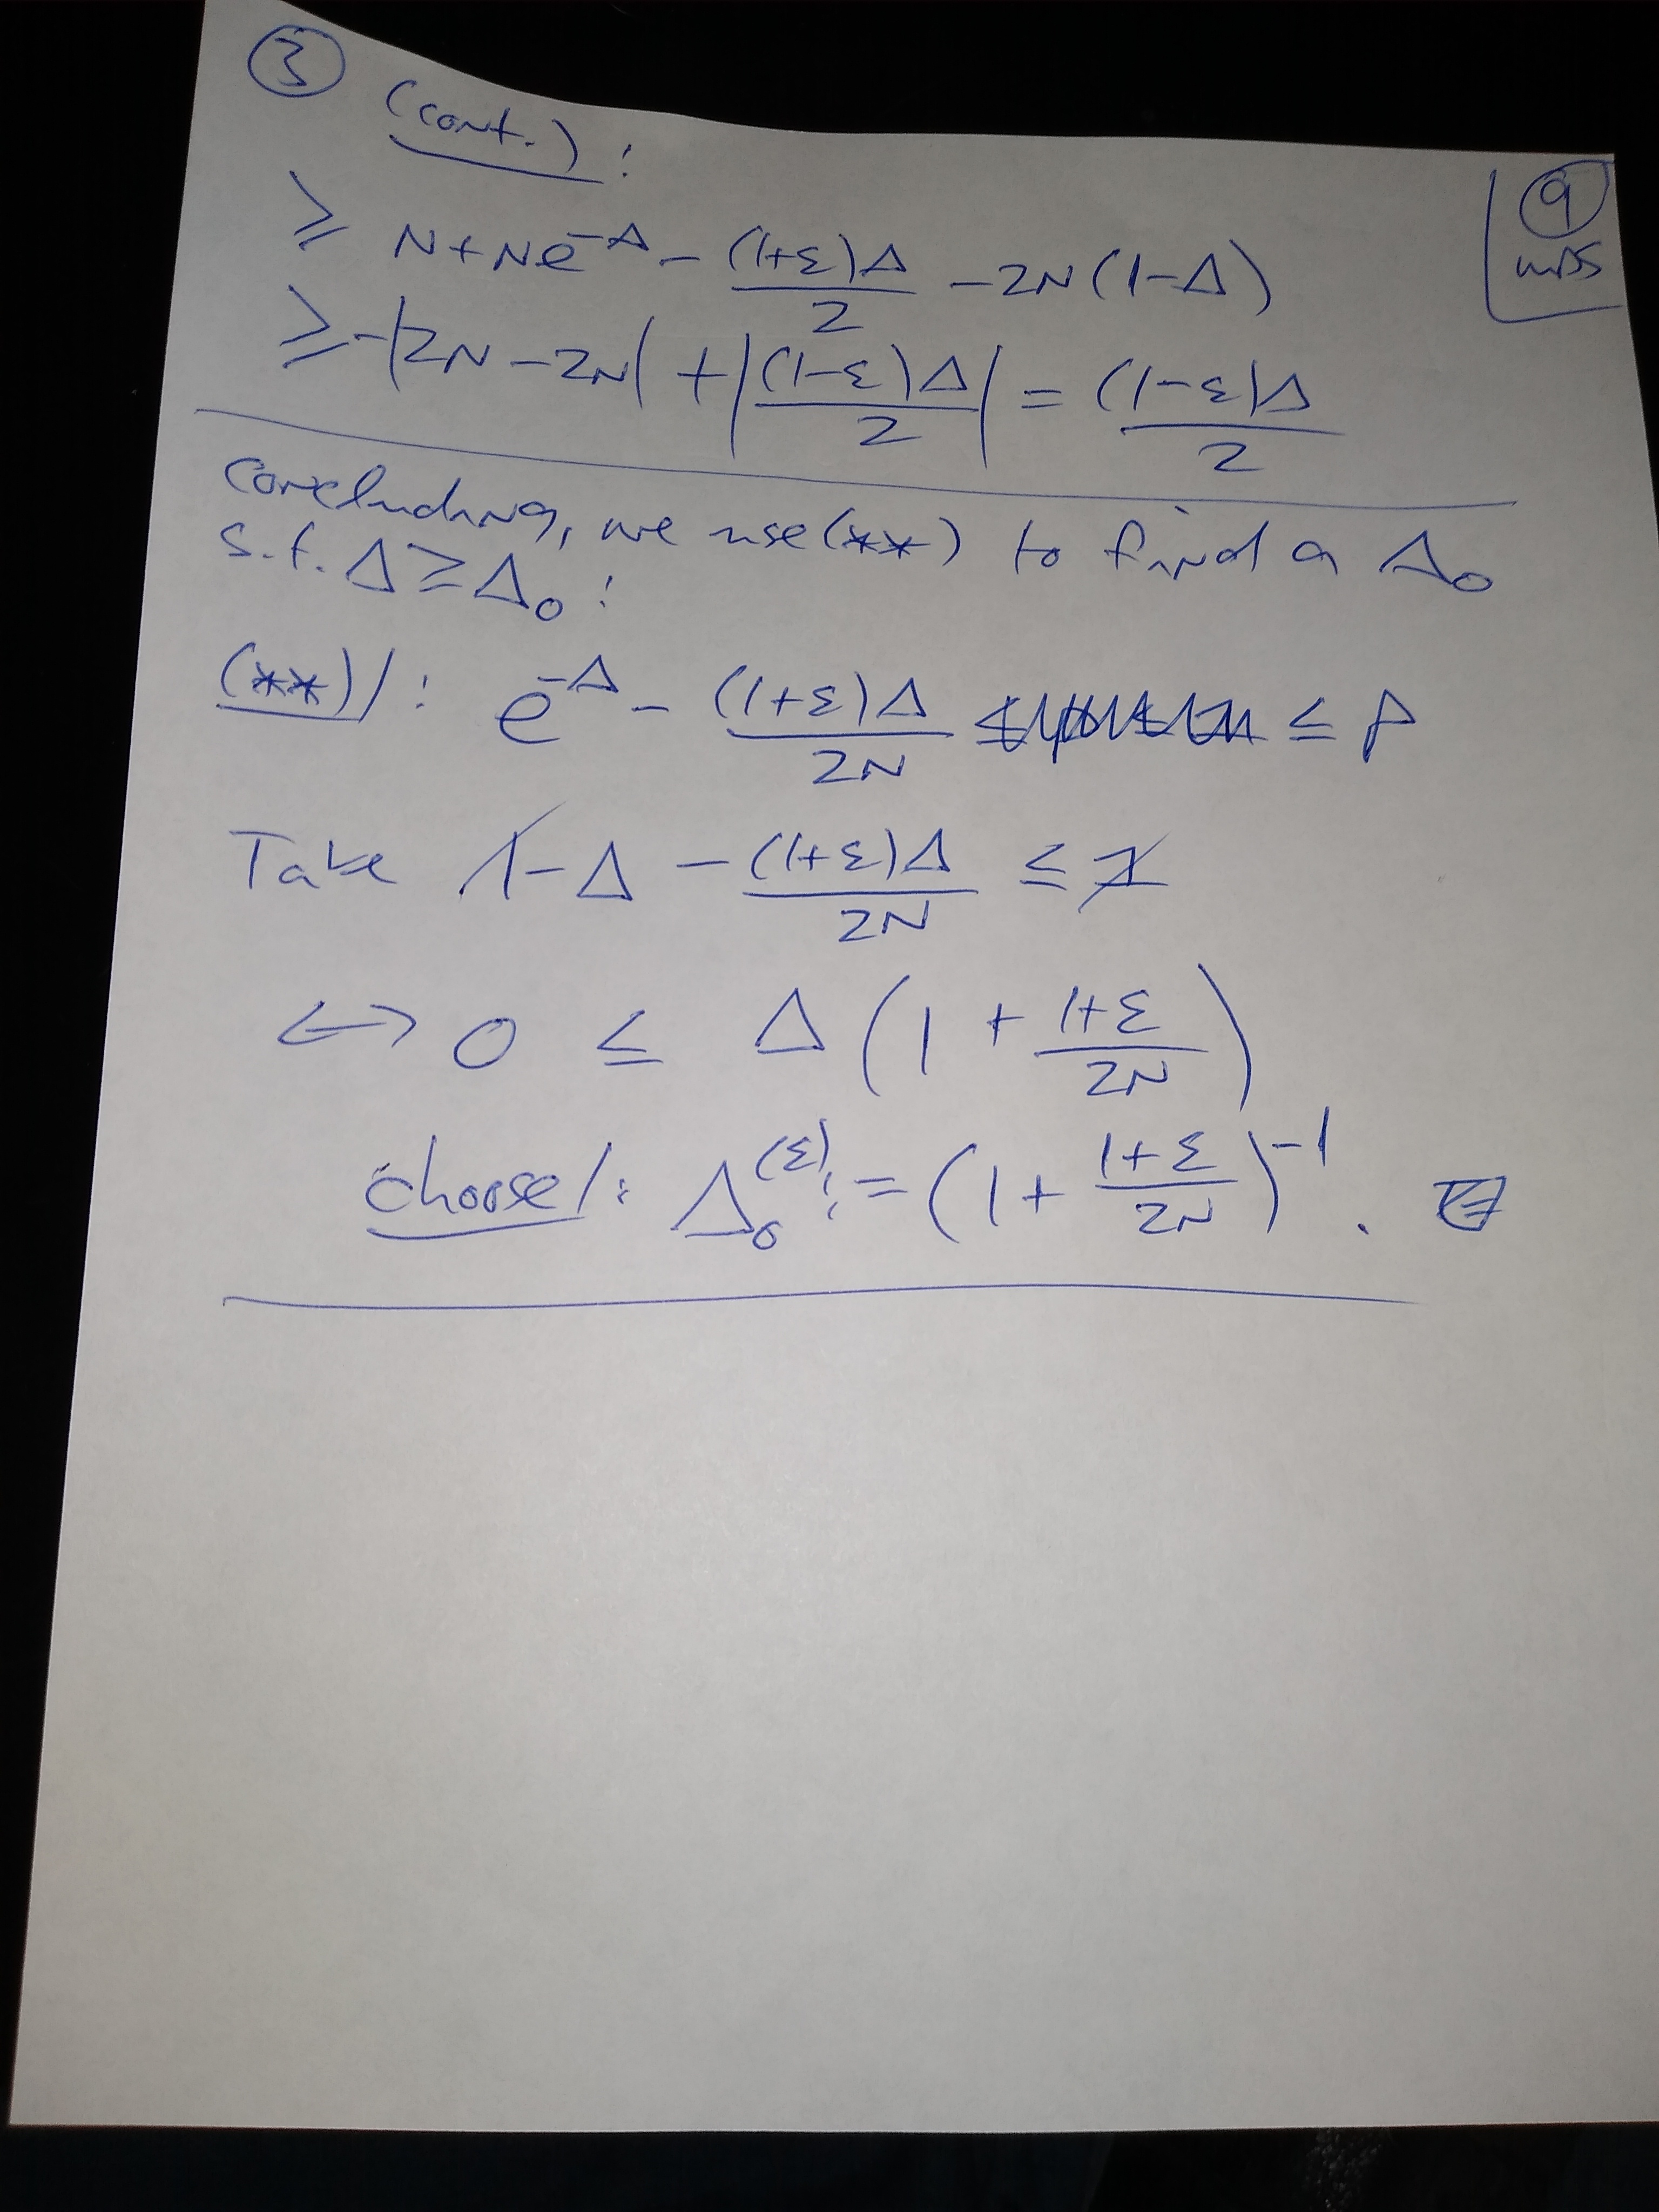 ③ (cont.):
⑨
≥ N+Ne^{-Δ} - (1+ε)Δ/2 - 2N(1-Δ)
≥ -|2N-2N| + |(1-ε)Δ/2| = (1-ε)Δ/2
Concluding, we use (**) to find a Δ₀
s.t. Δ≥Δ₀:
(**)/: e^{-Δ} - (1+ε)Δ/2N ≤ ρ
Take 1-Δ - (1+ε)Δ/2N ≤ 1
↔ 0 ≤ Δ(1 + (1+ε)/2N)
choose/: Δ₀^{(ε)} := (1 + (1+ε)/2N)^{-1}.